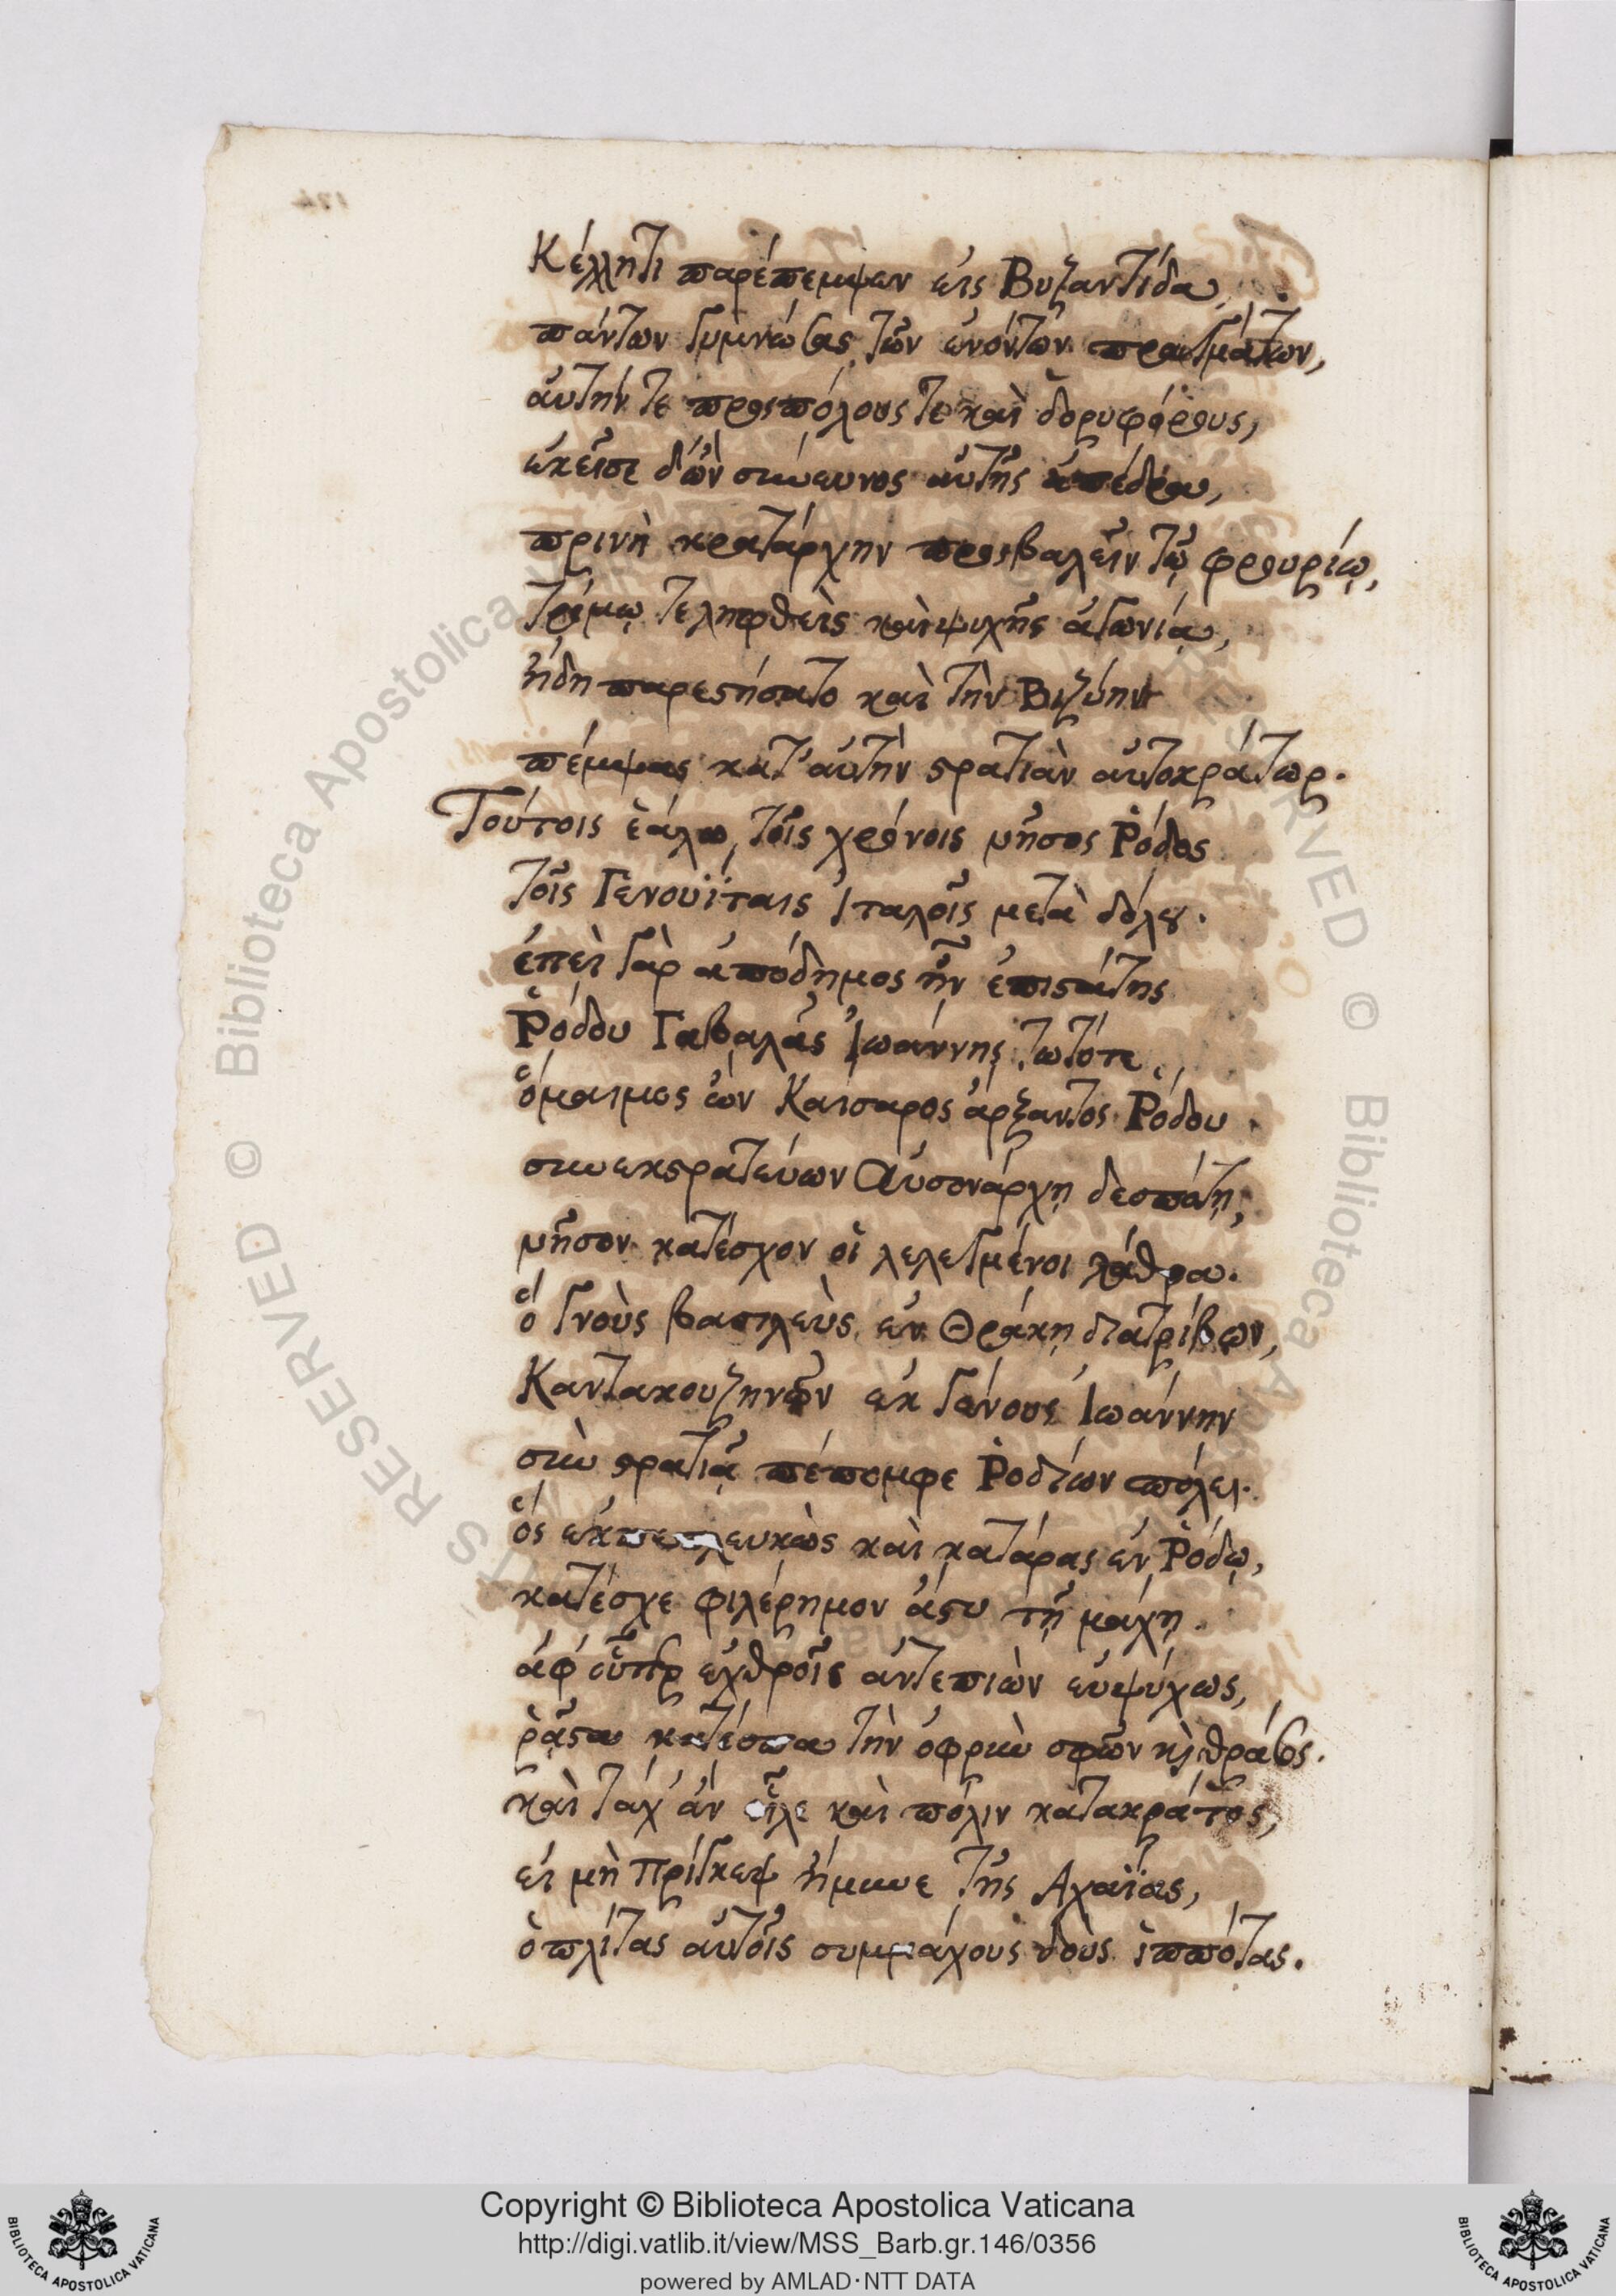 Κέλλητι παρέπεμψεν εἰς Βυζαντίδα,
πάντων γυμνώσας τῶν ἐνόντων πραγμάτων,
αὐτήν τε προσπόλους τε καὶ δορυφόρους,
ἐκεῖσε δ' ὢν σύνευνος αὐτῆς ἀπέδρα,
πρινὴ κρατάρχην προσβαλεῖν τῷ φρουρίῳ,
τρόμῳ τε ληφθεὶς καὶ ψυχῆς ἀγωνίᾳ,
ἤδη παρεστήσατο καὶ τὴν Βιζύην
πέμψας κατ' αὐτὴν στρατιὰν αὐτοκράτωρ.
Τούτοις ἑάλω τοῖς χρόνοις νῆσος Ῥόδος
τοῖς Γενουΐταις Ἰταλοῖς μετὰ δόλου.
ἐπεὶ γὰρ ἀπόδημος ἦν ἐπιστάτης
Ῥόδου Γαβαλᾶς Ἰωάννης τωτότε,
ὅμαιμος ὢν Καίσαρος ἄρξαντος Ῥόδου
συνεκστρατεύων Αὐσονάρχῃ δεσπότῃ,
νῆσον κατέσχον οἱ λελεγμένοι λάθρα.
ὃ γνοὺς βασιλεὺς ἐν Θρᾴκῃ διατρίβων,
Καντακουζηνῶν ἐκ γένους Ἰωάννην
σὺν στρατιᾷ πέπομφε Ῥοδίων πόλει.
ὃς ἐκπεπλευκὼς καὶ κατάρας ἐν Ῥόδῳ,
κατέσχε φιλέρημον ἄστυ τῇ μάχῃ.
ἀφ' οὗπερ ἐχθροῖς ἀντεπιὼν εὐψύχως,
ῥᾷστα κατέσπα τὴν ὀφρὺν σφῶν καὶ θράσος.
καὶ τάχ' ἂν εἷλε καὶ πόλιν κατακράτος,
εἰ μὴ πρίγκεψ ἤμυνε τῆς Ἀχαΐας,
ὁπλίτας αὐτοῖς συμμάχους δοὺς ἱππότας.
Copyright © Biblioteca Apostolica Vaticana
http://digi.vatlib.it/view/MSS_Barb.gr.146/0356
powered by AMLAD·NTT DATA
BIBLIOTECA APOSTOLICA VATICANA
BIBLIOTECA APOSTOLICA VATICANA